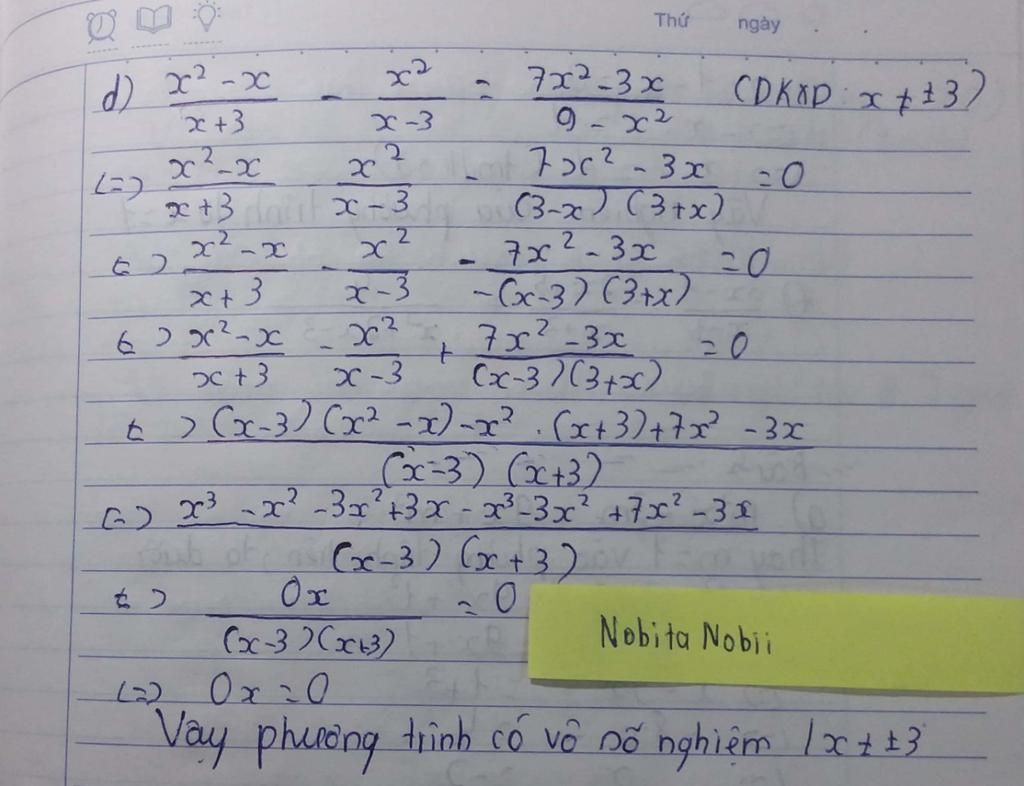 Thứ ngày
d) (x² - x)/(x+3) - x²/(x-3) = (7x² - 3x)/(9 - x²) (ĐKXĐ: x ≠ ±3)
<=> (x² - x)/(x+3) - x²/(x-3) - (7x² - 3x)/((3-x)(3+x)) = 0
<=> (x² - x)/(x+3) - x²/(x-3) - (7x² - 3x)/(-(x-3)(3+x)) = 0
<=> (x² - x)/(x+3) - x²/(x-3) + (7x² - 3x)/((x-3)(3+x)) = 0
<=> ((x-3)(x² - x) - x² . (x+3) + 7x² - 3x)/((x-3)(x+3))
<=> (x³ - x² - 3x² + 3x - x³ - 3x² + 7x² - 3x)/((x-3)(x+3))
<=> 0x/((x-3)(x+3)) = 0
Nobita Nobii
<=> 0x = 0
Vậy phương trình có vô số nghiệm / x ≠ ±3